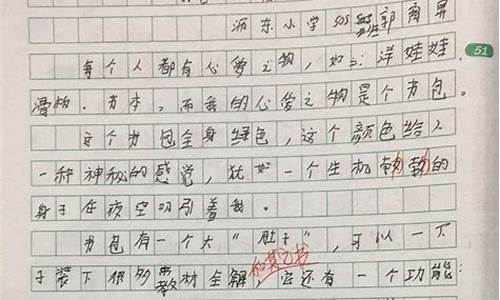 东小学505班郭
51
每个人都有心爱之物,如:洋娃娃、
滑板、书本,而我的心爱之物是个书包。
这个书包全身绿色,这个颜色给人
一种神秘的感觉,犹如一个生机勃勃的
身于在夜空吸引着我。
书包有一个大“肚子”,可以一下
子装下很多教材全解和其它书它还有一个功能